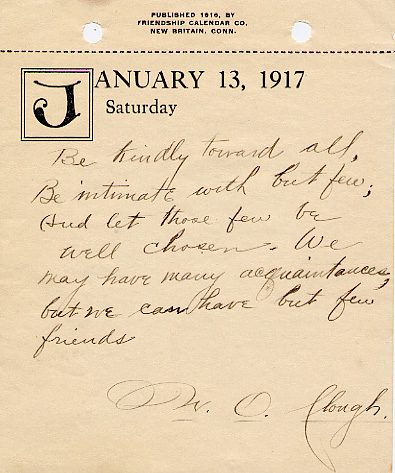 PUBLISHED 1916, BY
FRIENDSHIP CALENDAR CO.
NEW BRITAIN, CONN.
JANUARY 13, 1917
Saturday
Be kindly toward all,
Be intimate with but few;
And let those few be
well chosen. We
may have many acquaintances,
but we can have but few
friends
W. O. Clough.